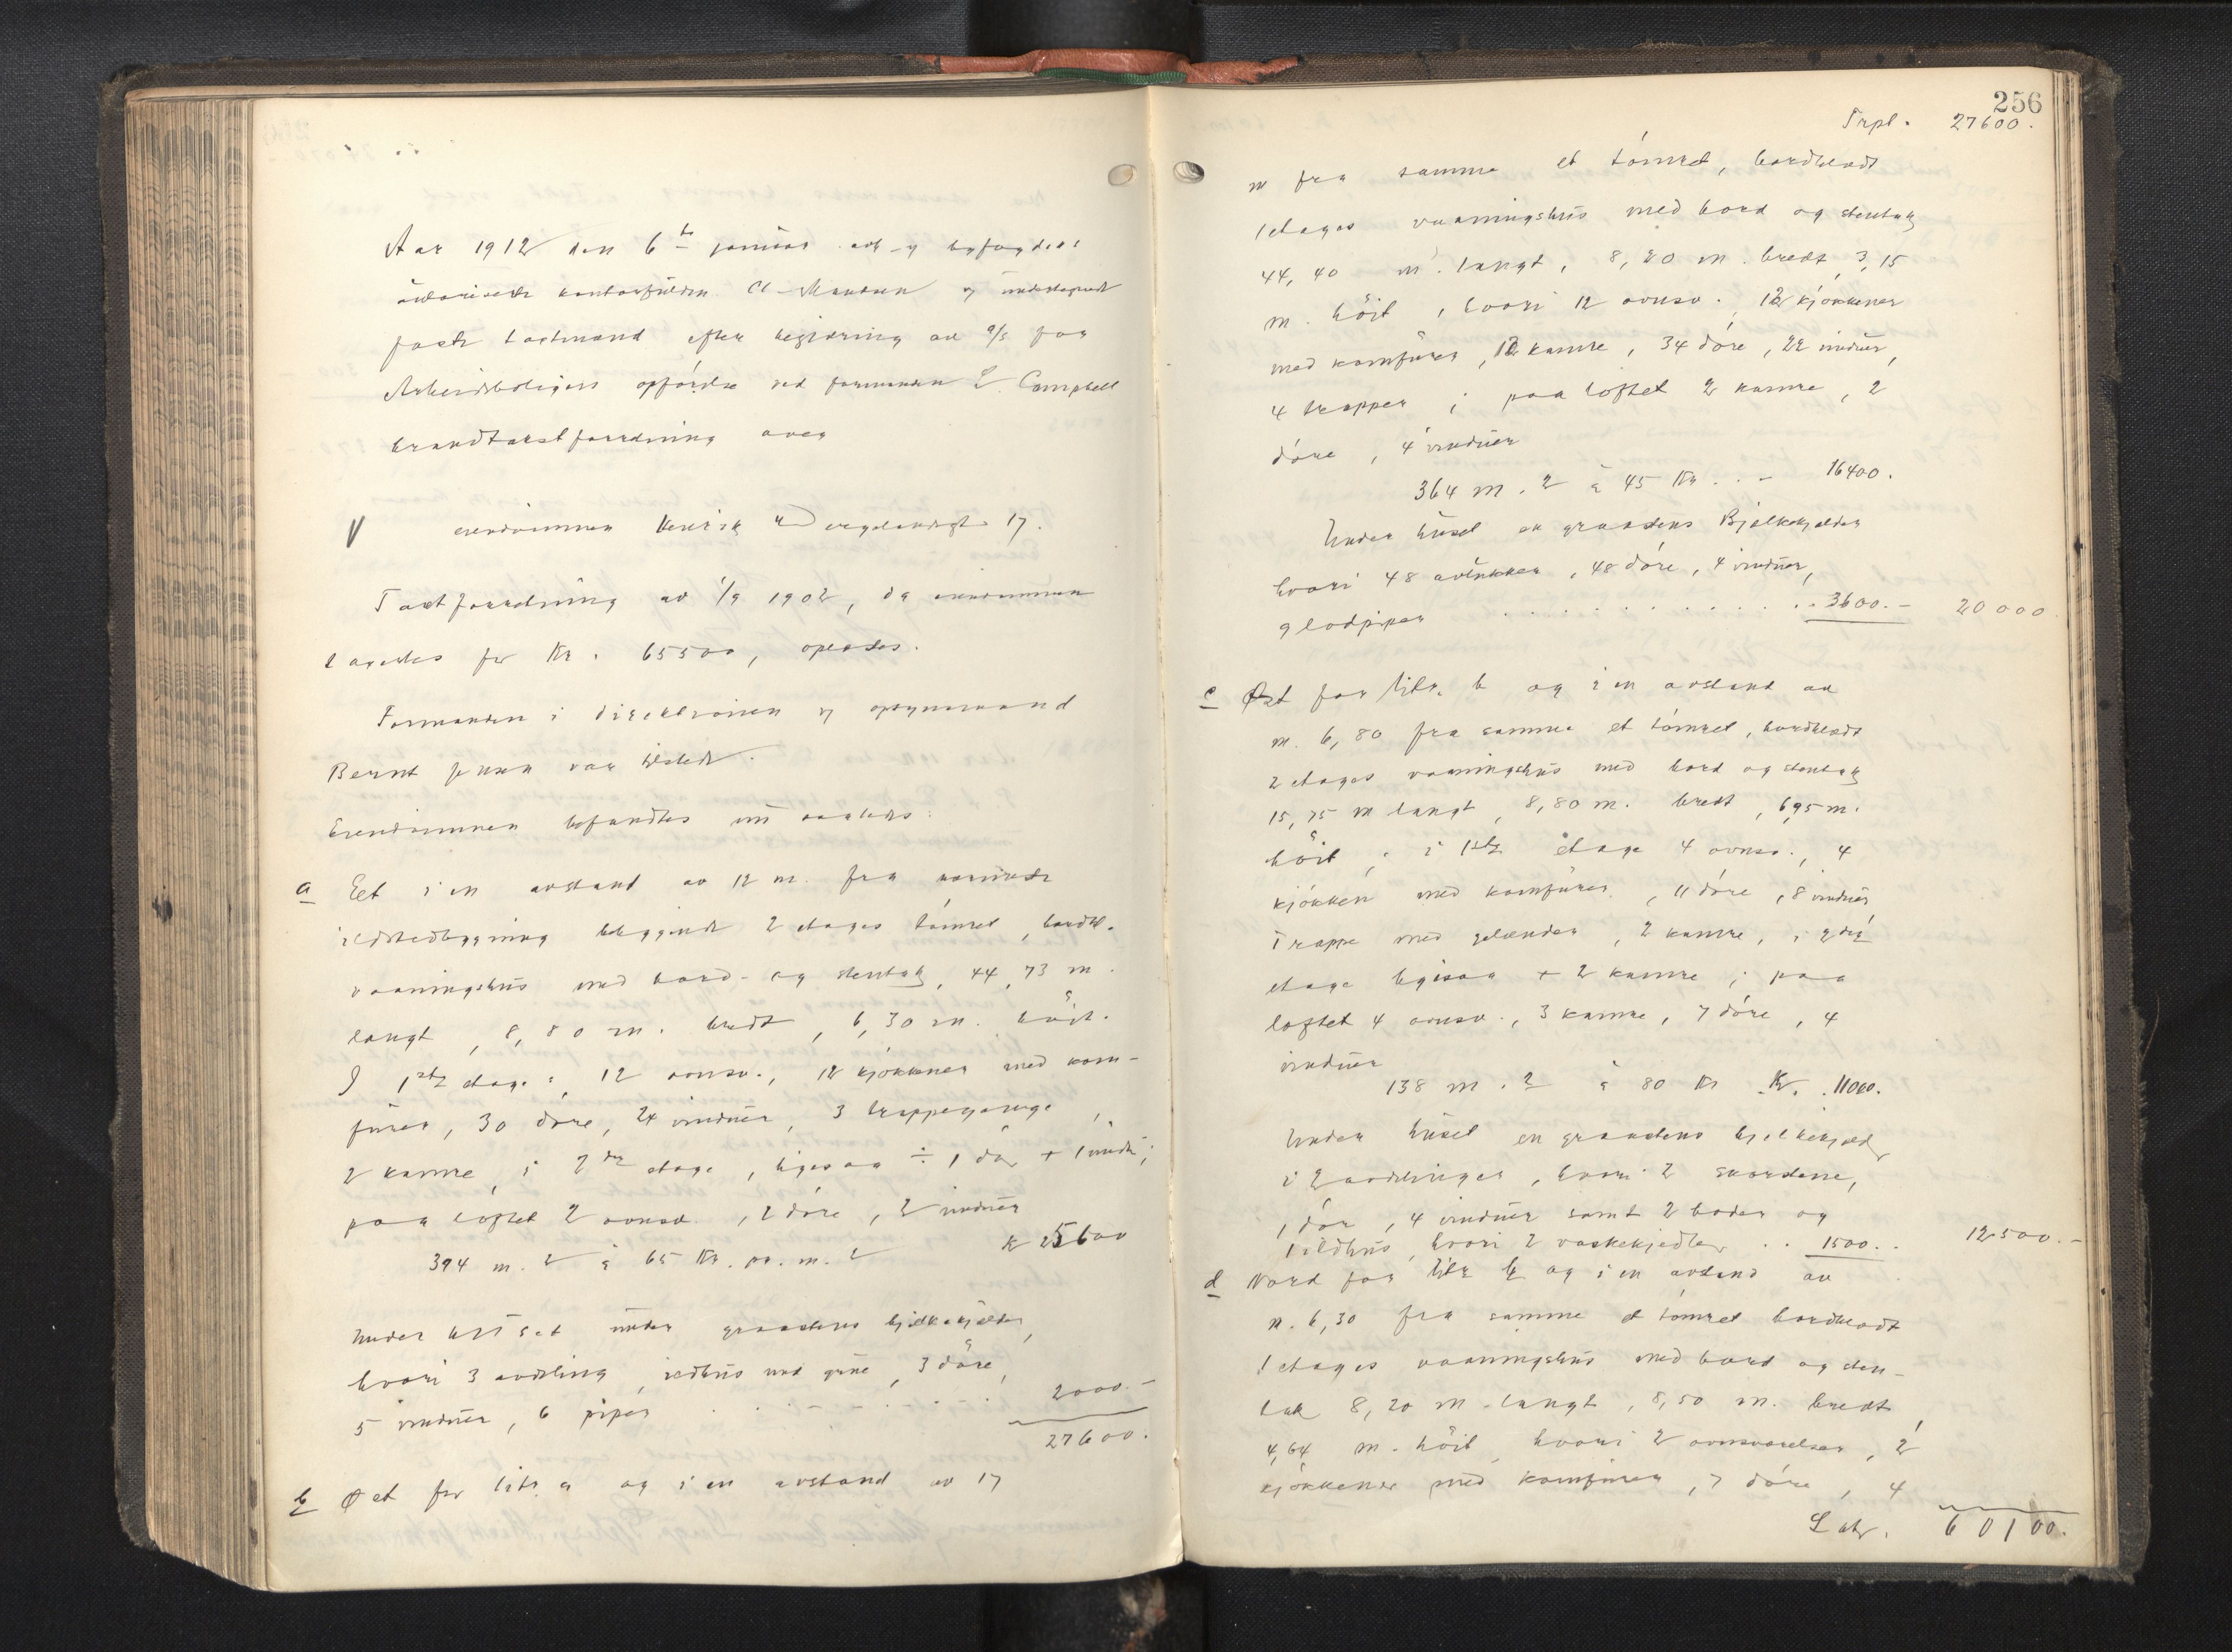 Aar 1912 den 6te januar avh. og byfogdens
autoriserte kontorfuldm. Cl. Madsen og undertegnede
faste takstmænd efter begjæring av A/S for
Arbeidsboligers opførelse ved formanden L. Campbell
brandtakstforretning over
V eiendommen Henrik Wergelandsgt. 17.
Takstforretning av 1/9 1902, da eiendommen
taxertes for Kr. 65500, oplæstes.
Formanden i direktionen og opsynsmand
Bernt Jensen var tilstede.
Eiendommen befandtes nu saaledes:
a Et i en avstand av 12 m. fra nærmeste
ildstedbygning beliggende 2 etages tømret, bordkl.
vaaningshus med bord- og stentak, 44,73 m.
langt, 8,80 m. bredt, 6,30 m. høit.
I 1ste etage: 12 ovnsv., 12 kjøkkener med kom-
furer, 30 døre, 24 vinduer, 3 trappegange,
2 kamre, i 2den etage, ligesaa ÷ 1 dør + 1 vindu;
paa loftet 2 ovnsv., 2 døre, 2 vinduer
394 m.2 à 65 Kr. pr. m.2 K 25600
Under huset under graastens bjelkekjelder,
hvori 3 avdeling, ildhus med grue, 3 døre,
5 vinduer, 6 piper . . . . . . 2000.-
27600.
b Øst for litr. a og i en avstand av 17
256
Trpt. 27600.
m fra samme et tømret, bordklædt
1 etages vaaningshus med bord og stentak
44,40 m. langt, 8,20 m. bredt, 3,15
m. høit, hvori 12 ovnsv. 12 kjøkkener
med komfurer, 12 kamre, 34 døre, 22 vinduer,
4 trapper; paa loftet 2 kamre, 2
døre, 4 vinduer
364 m.2 à 45 Kr. . . - 16400.
Under huset en graastens Bjelkekjelder
hvori 48 avlukker, 48 døre, 4 vinduer,
9 lodpiper . . . . . . . . . . . 3600.- 20000
c Øst for litr. b og i en avstand av
m. 6,80 fra samme et tømret, bordklædt
2 etages vaaningshus med bord og stentak
15,75 m langt, 8,80 m. bredt, 6,95 m.
høit; i 1ste etage 4 ovnsv., 4
kjøkken med komfurer, 11 døre, 8 vinduer,
Trappe med gelænder, 2 kamre, i 2den
etage ligesaa + 2 kamre; paa
loftet 4 ovnsv., 3 kamre, 7 døre, 4
vinduer
138 m.2 à 80 Kr K. 11000.
Under huset en graastens bjelkekjelder
i 2 avdelinger, hvori 2 skorstene,
1 dør, 4 vinduer samt 2 boder og
1 ildhus, hvori 2 vaskekjedler . . 1500. . 12500.-
d Nord for litr b og i en avstand av
m. 6,30 fra samme et tømret bordklædt
1 etages vaaningshus med bord og sten-
tak 8,20 m. langt, 8,50 m. bredt,
4,64 m. høit, hvori 2 ovnsværelser, 2
kjøkkener med komfurer, 7 døre, 4
Latr. 60100.